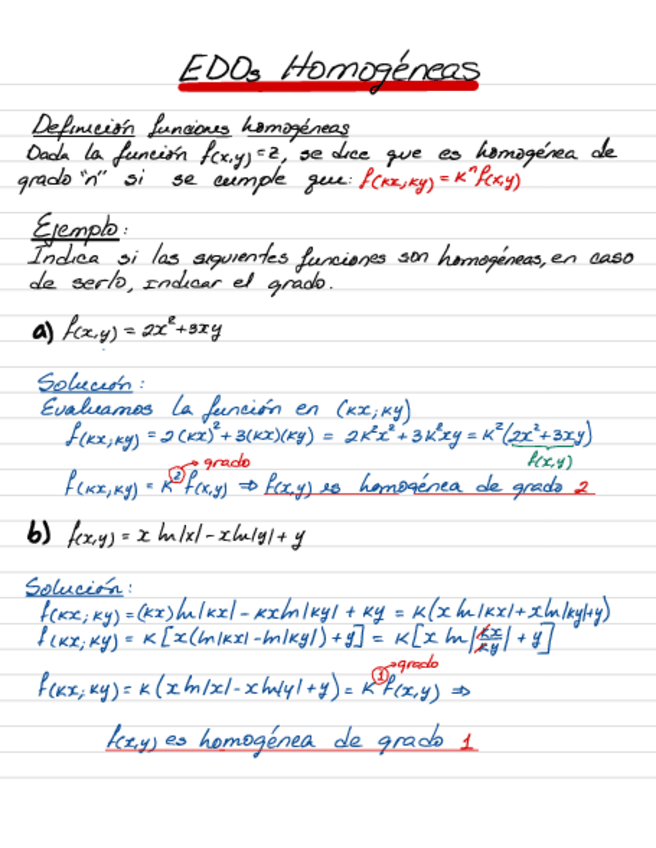 EDOs Homogéneas
Definición funciones homogéneas
Dada la función f(x,y)=z, se dice que es homogénea de
grado "n" si se cumple que: f(kx,ky) = kⁿ f(x,y)
Ejemplo:
Indica si las siguientes funciones son homogéneas, en caso
de serlo, indicar el grado.
a) f(x,y) = 2x²+3xy
Solución:
Evaluamos la función en (kx;ky)
f(kx;ky) = 2(kx)²+3(kx)(ky) = 2k²x²+3k²xy = k²(2x²+3xy)
f(x,y)
grado
f(kx,ky) = k² f(x,y) ⇒ f(x,y) es homogénea de grado 2
b) f(x,y) = x ln|x| - x ln|y| + y
Solución:
f(kx;ky) = (kx) ln|kx| - kx ln|ky| + ky = k(x ln|kx| + x ln|ky|+y)
f(kx;ky) = k[x(ln|kx| - ln|ky|) + y] = k[x ln|kx/ky| + y]
grado
f(kx;ky) = k(x ln|x| - x ln|y| + y) = k¹ f(x,y) ⇒
f(x,y) es homogénea de grado 1